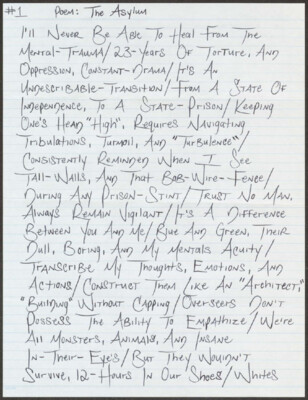 #1 Poem: The Asylum
I'll Never Be Able To Heal From The
Mental-Trauma/23-Years Of Torture, And
Oppression, Constant-Drama/It's An
Undescribable-Transition/From A State Of
Independence, To A State-Prison/Keeping
One's Head "High", Requires Navigating
Tribulations, Turmoil, And "Turbulence"/
Consistently Reminded When I See
Tall-Walls, And That Bob-Wire-Fence/
During Any Prison-Stint/Trust No Man,
Always Remain Vigilant/It's A Difference
Between You And Me/Blue And Green, Their
Dull, Boring, And My Mentals Acuity/
Transcribe My Thoughts, Emotions, And
Actions/Construct Them Like An "Architect,"
"Building" Without Capping/Overseers Don't
Possess The Ability To Empathize/We're
All Monsters, Animals, And Insane
In-Their-Eye's/But They Wouldn't
Survive, 12-Hours In Our Shoes/Whites